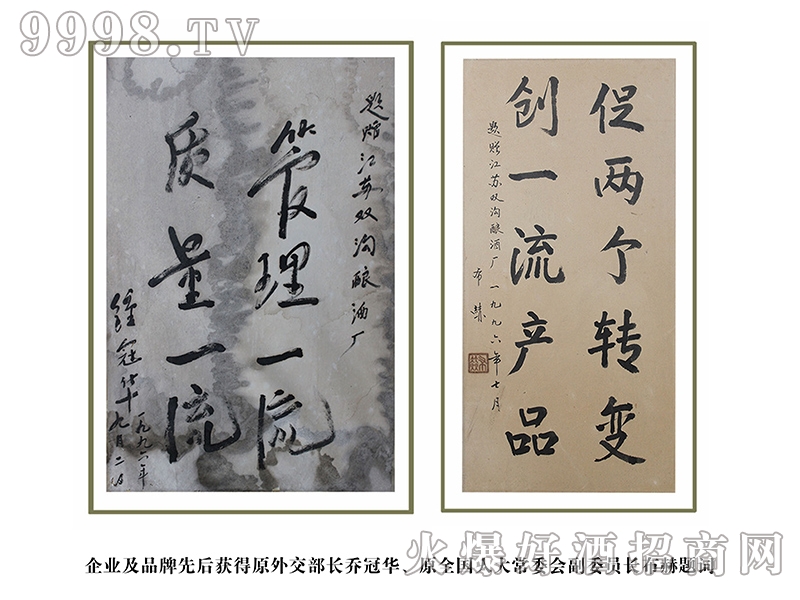 9998.TV
题赠江苏双沟酿酒厂
管理一流
质量一流
冠华
一九九六年
九月二日
促两个转变
创一流产品
题赠江苏双沟酿酒厂 一九九六年七月
布赫
企业及品牌先后获得原外交部长乔冠华、原全国人大常委会副委员长布赫题词
火爆好酒招商网